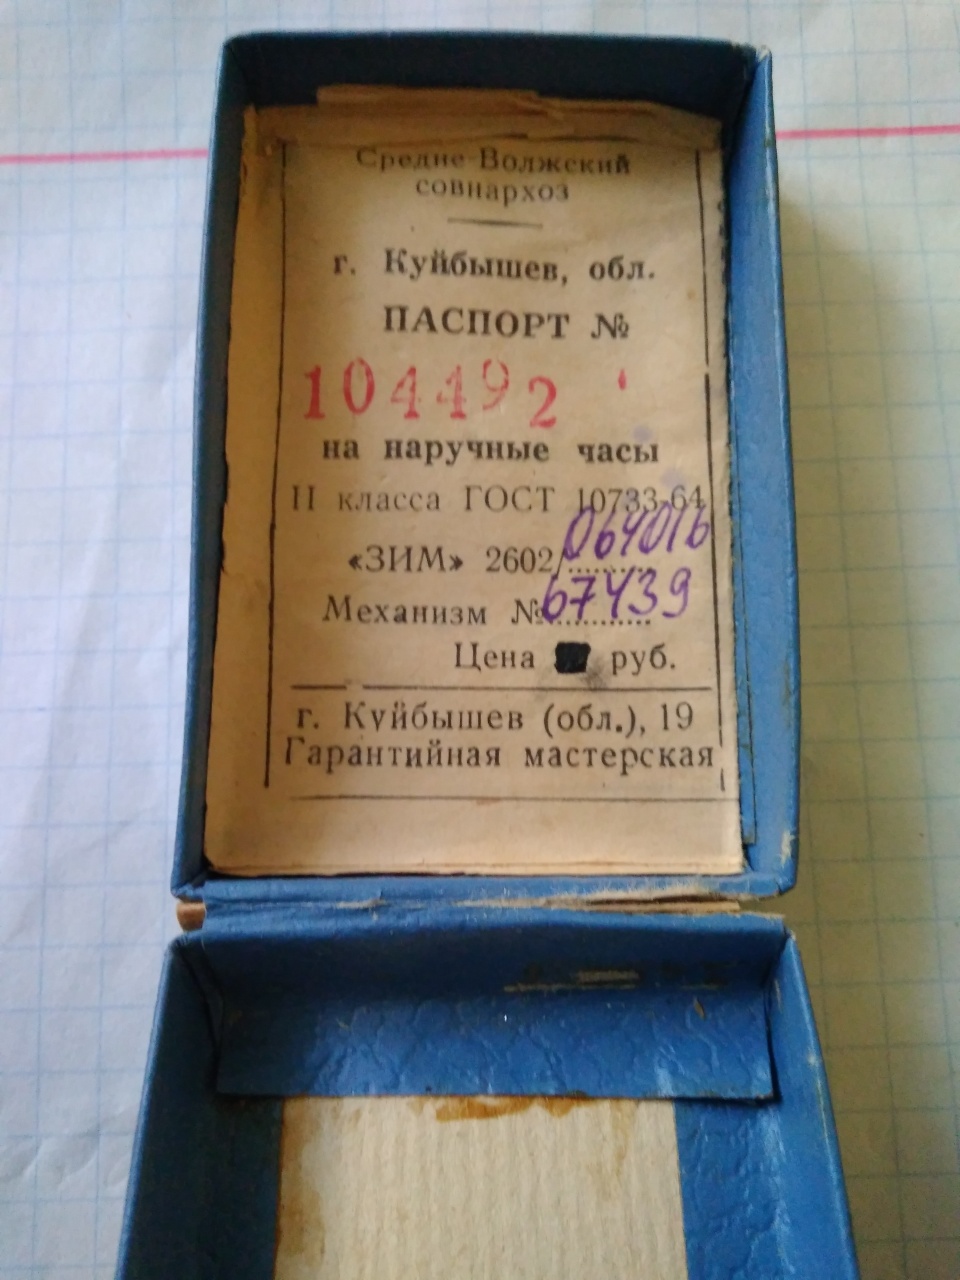 Средне-Волжский
совнархоз
г. Куйбышев, обл.
ПАСПОРТ №
104492
на наручные часы
II класса ГОСТ 10733-64
«ЗИМ» 2602/064016
Механизм № 67439
Цена руб.
г. Куйбышев (обл.), 19
Гарантийная мастерская